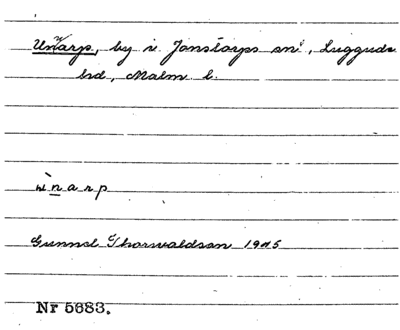 by i Jonstorps sn, Luggude
hd, Malm. l.
Gunnel Thorwaldson 1915
Nr 5683.